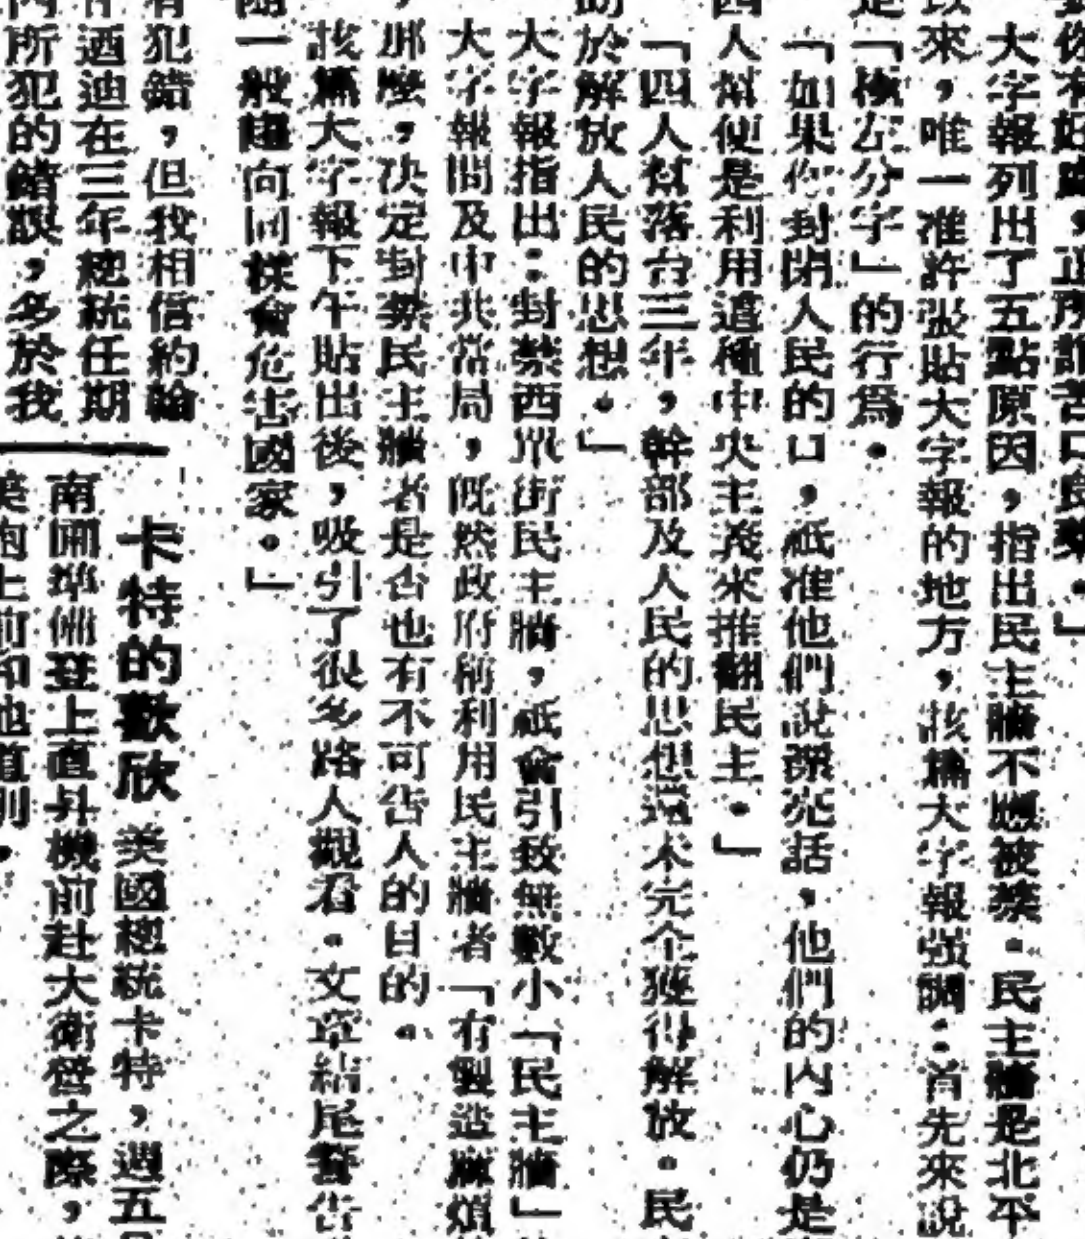 你有好處，正所謂苦口良藥。」
大字報列出了五點原因，指出民主牆不應被禁。民主牆是北平
以來，唯一准許張貼大字報的地方，該篇大字報強調：首先來說
是「極左分子」的行爲。
「如果你封閉人民的口，祇准他們說漂亮話，他們的內心仍是
四人幫便是利用這種中央主義來推翻民主。」
「四人幫落台三年，幹部及人民的思想還未完全獲得解放。民
助於解放人民的思想。」
大字報指出：封禁西單街民主牆，祇會引致無數小「民主牆」
大字報問及中共當局，既然政府稱利用民主牆者「有製造麻煩
，那麼，決定封禁民主牆者是否也有不可告人的目的。
該篇大字報下午貼出後，吸引了很多路人觀看。文章結尾警告
一般趨向同樣會危害國家。」
有犯錯，但我相信約翰
迺迪在三年總統任期
內所犯的錯誤，多於我
卡特的歡欣 美國總統卡特，週五
南開羅洲登上直昇機前赴大衛營之際，
美抱上前和他道別。